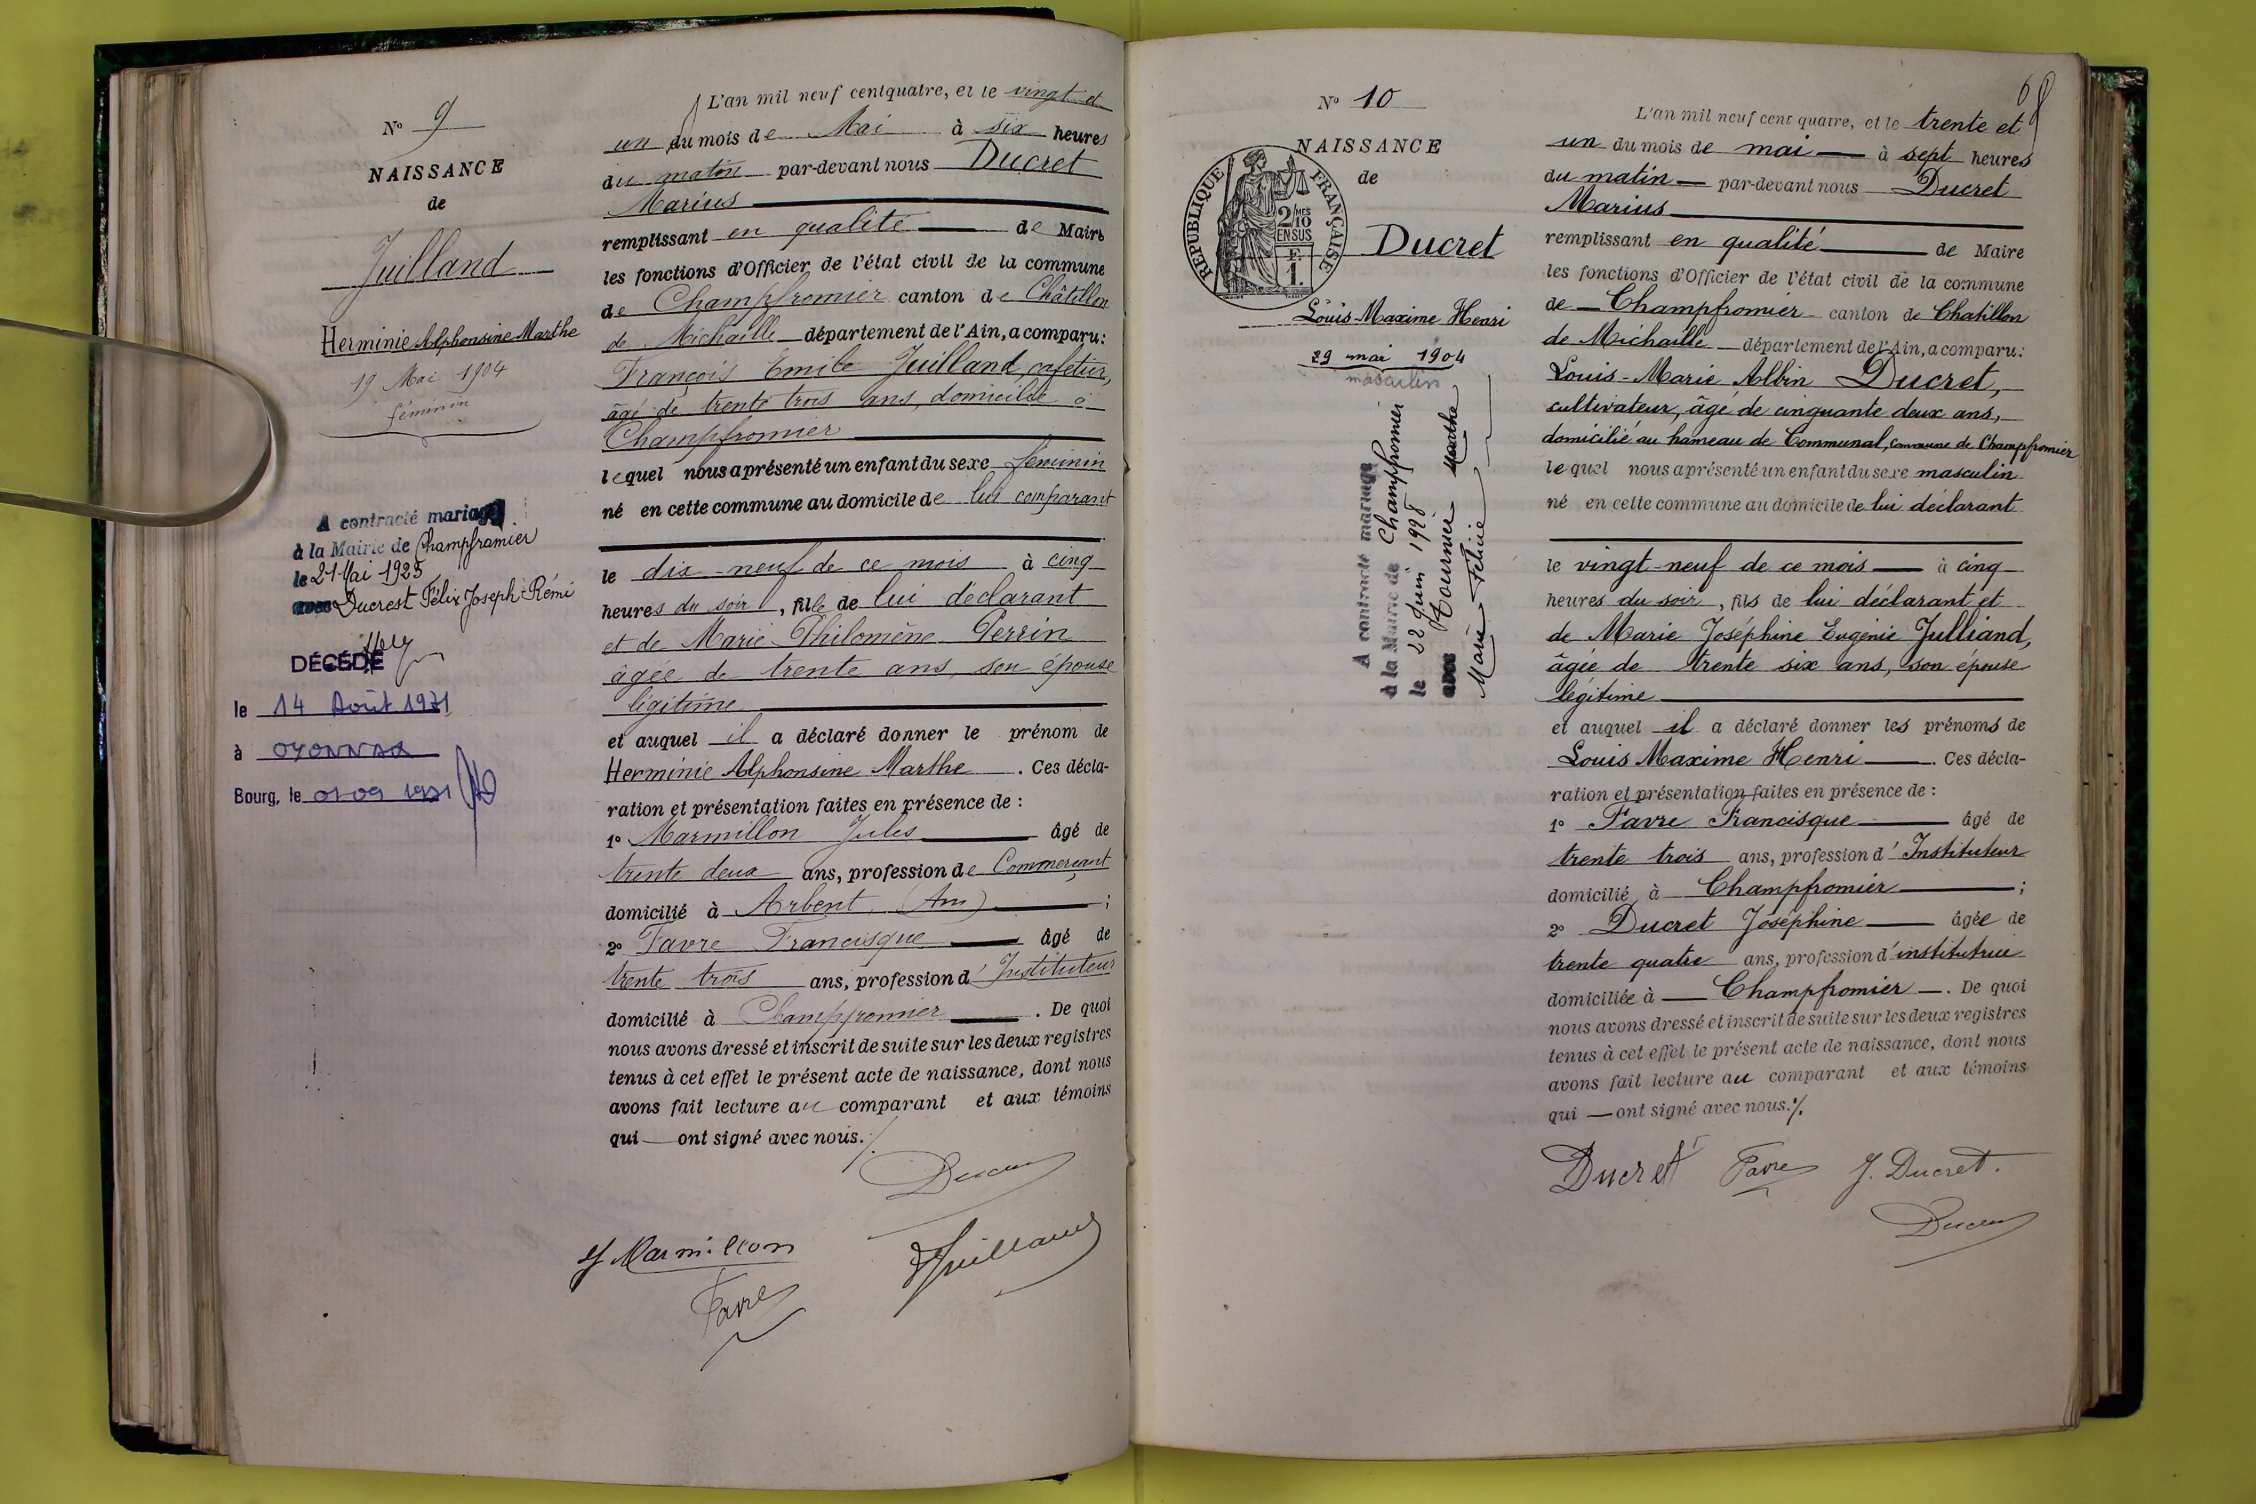 Nº 9
NAISSANCE
de
Juilland
Herminie Alphonsine Marthe
19 Mai 1904
féminin
A contracté mariage
à la Mairie de Champfromier
le 21 Mai 1925
avec Ducrest Félix Joseph-Rémi
DÉCÉDÉ
le 14 Août 1971
à OYONNAX
Bourg, le 01 09 1971
L'an mil neuf cent quatre, et le vingt et
un du mois de Mai à six heures
du matin par-devant nous Ducret
Marius
remplissant en qualité de Maire
les fonctions d'Officier de l'état civil de la commune
de Champfromier canton de Châtillon
de Michaille département de l'Ain, a comparu:
François Emile Juilland, cafetier,
âgé de trente trois ans, domicilié à
Champfromier
lequel nous a présenté un enfant du sexe féminin
né en cette commune au domicile de lui comparant
le dix-neuf de ce mois à cinq
heures du soir, fille de lui déclarant
et de Marie Philomène Perrin
âgée de trente ans, son épouse
légitime
et auquel il a déclaré donner le prénom de
Herminie Alphonsine Marthe. Ces décla-
ration et présentation faites en présence de :
1º Marmillon Jules âgé de
trente deux ans, profession de Commerçant
domicilié à Arbent (Ain) ;
2º Favre Francisque âgé de
trente trois ans, profession d'Instituteur
domicilié à Champfromier. De quoi
nous avons dressé et inscrit de suite sur les deux registres
tenus à cet effet le présent acte de naissance, dont nous
avons fait lecture au comparant et aux témoins
qui — ont signé avec nous./.
J Marmillon
Juilland
Favre
Nº 10
NAISSANCE
de
RÉPUBLIQUE FRANÇAISE
2/10 MES
EN SUS
F.
1.
Ducret
Louis Maxime Henri
29 mai 1904
masculin
A contracté mariage
à la Mairie de Champfromier
le 22 Juin 1928
avec Tournier Marthe
Marie Félicie
68
L'an mil neuf cent quatre, et le trente et
un du mois de mai — à sept heures
du matin — par-devant nous Ducret
Marius
remplissant en qualité de Maire
les fonctions d'Officier de l'état civil de la commune
de — Champfromier canton de Chatillon
de Michaille département de l'Ain, a comparu:
Louis-Marie Albin Ducret,
cultivateur, âgé de cinquante deux ans,
domicilié au hameau de Communal, commune de Champfromier
lequel nous a présenté un enfant du sexe masculin
né en cette commune au domicile de lui déclarant
le vingt-neuf de ce mois — à cinq
heures du soir, fils de lui déclarant et
de Marie Joséphine Eugénie Julliand,
âgée de trente six ans, son épouse
légitime
et auquel il a déclaré donner les prénoms de
Louis Maxime Henri. Ces décla-
ration et présentation faites en présence de :
1º Favre Francisque âgé de
trente trois ans, profession d'Instituteur
domicilié à Champfromier ;
2º Ducret Joséphine âgée de
trente quatre ans, profession d'institutrice
domiciliée à — Champfromier —. De quoi
nous avons dressé et inscrit de suite sur les deux registres
tenus à cet effet le présent acte de naissance, dont nous
avons fait lecture au comparant et aux témoins
qui — ont signé avec nous./.
Ducret Favre J. Ducret.